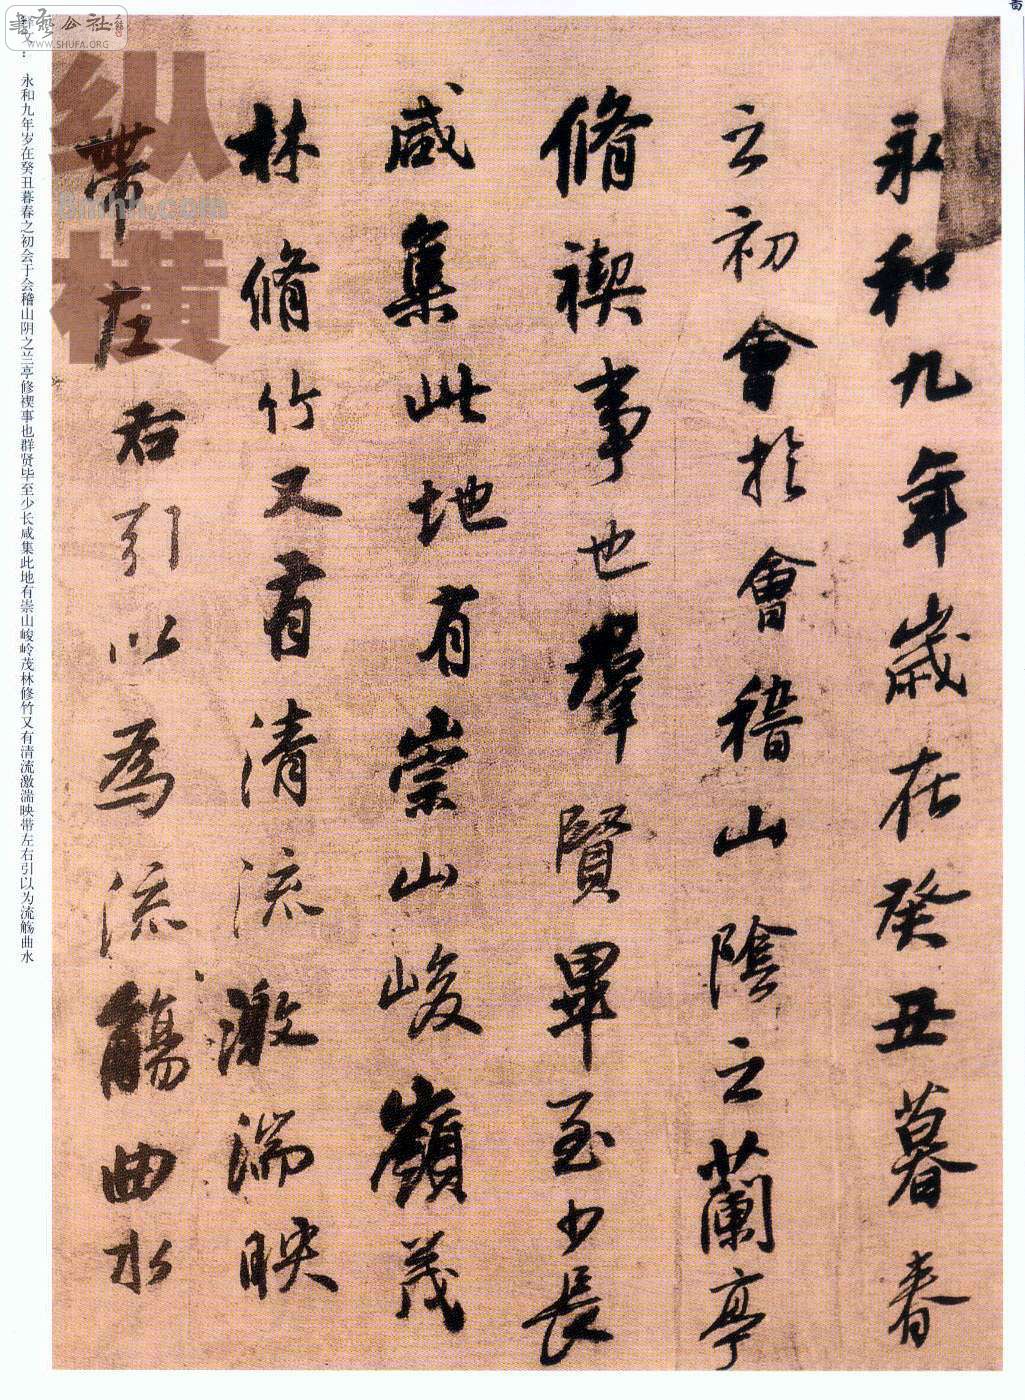 永和九年歲在癸丑暮春
之初會於會稽山陰之蘭亭
脩禊事也羣賢畢至少長
咸集此地有崇山峻嶺茂
林脩竹又有清流激湍映
帶左右引以為流觴曲水
釋文：永和九年岁在癸丑暮春之初会于会稽山阴之兰亭修禊事也群贤毕至少长咸集此地有崇山峻岭茂林修竹又有清流激湍映带左右引以为流觞曲水
書藝公社
WWW.SHUFA.ORG
纵
横